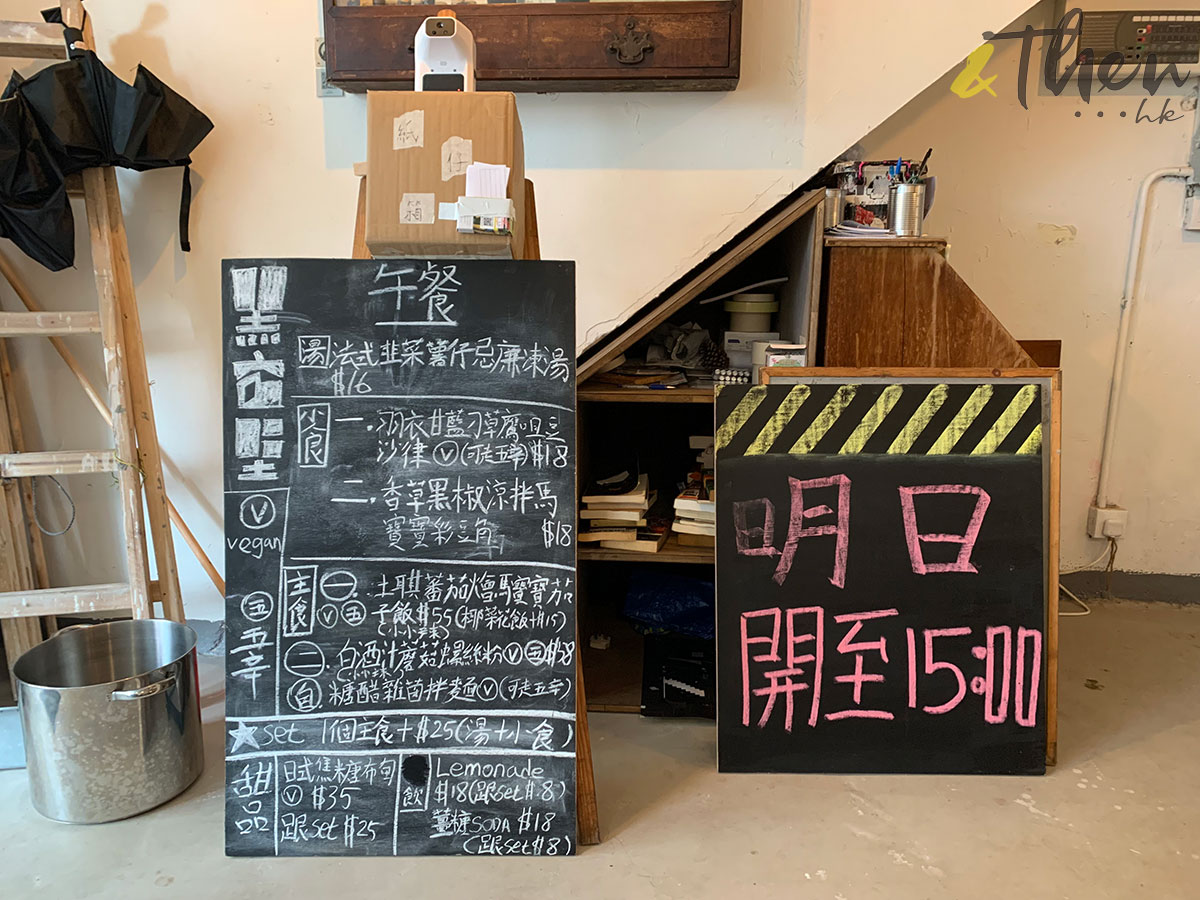 &Then
...hk
紙
仔
箱
黑窗里
午餐
湯 法式韭菜薯仔忌廉凍湯
$16
小食 一.羽衣甘藍刁草鷹咀豆
沙律 Ⓥ(可走五辛) $18
二.香草黑椒涼拌馬
寶寶彩豆角 $18
Ⓥ
vegan
五 五辛
主食 一 土耳其蕃茄燴馬寶寶茄
Ⓥ 五 子飯 $55 (椰菜花飯+$15)
(小小辣)
二.白酒汁蘑菇螺絲粉 Ⓥ 五 $58
(小小辣)
自 糖醋雜菌拌麵 Ⓥ (可走五辛)
★ set 1個主食+$25(湯+小食)
甜品
日式焦糖布甸
Ⓥ $35
跟set $25
飲
Lemonade
$18(跟set $8)
薑糖SODA $18
(跟set $8)
明日
開至15:00